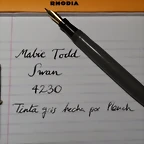 RHODIA
Mabie Todd
Swan
4230
Tinta gris hecha por